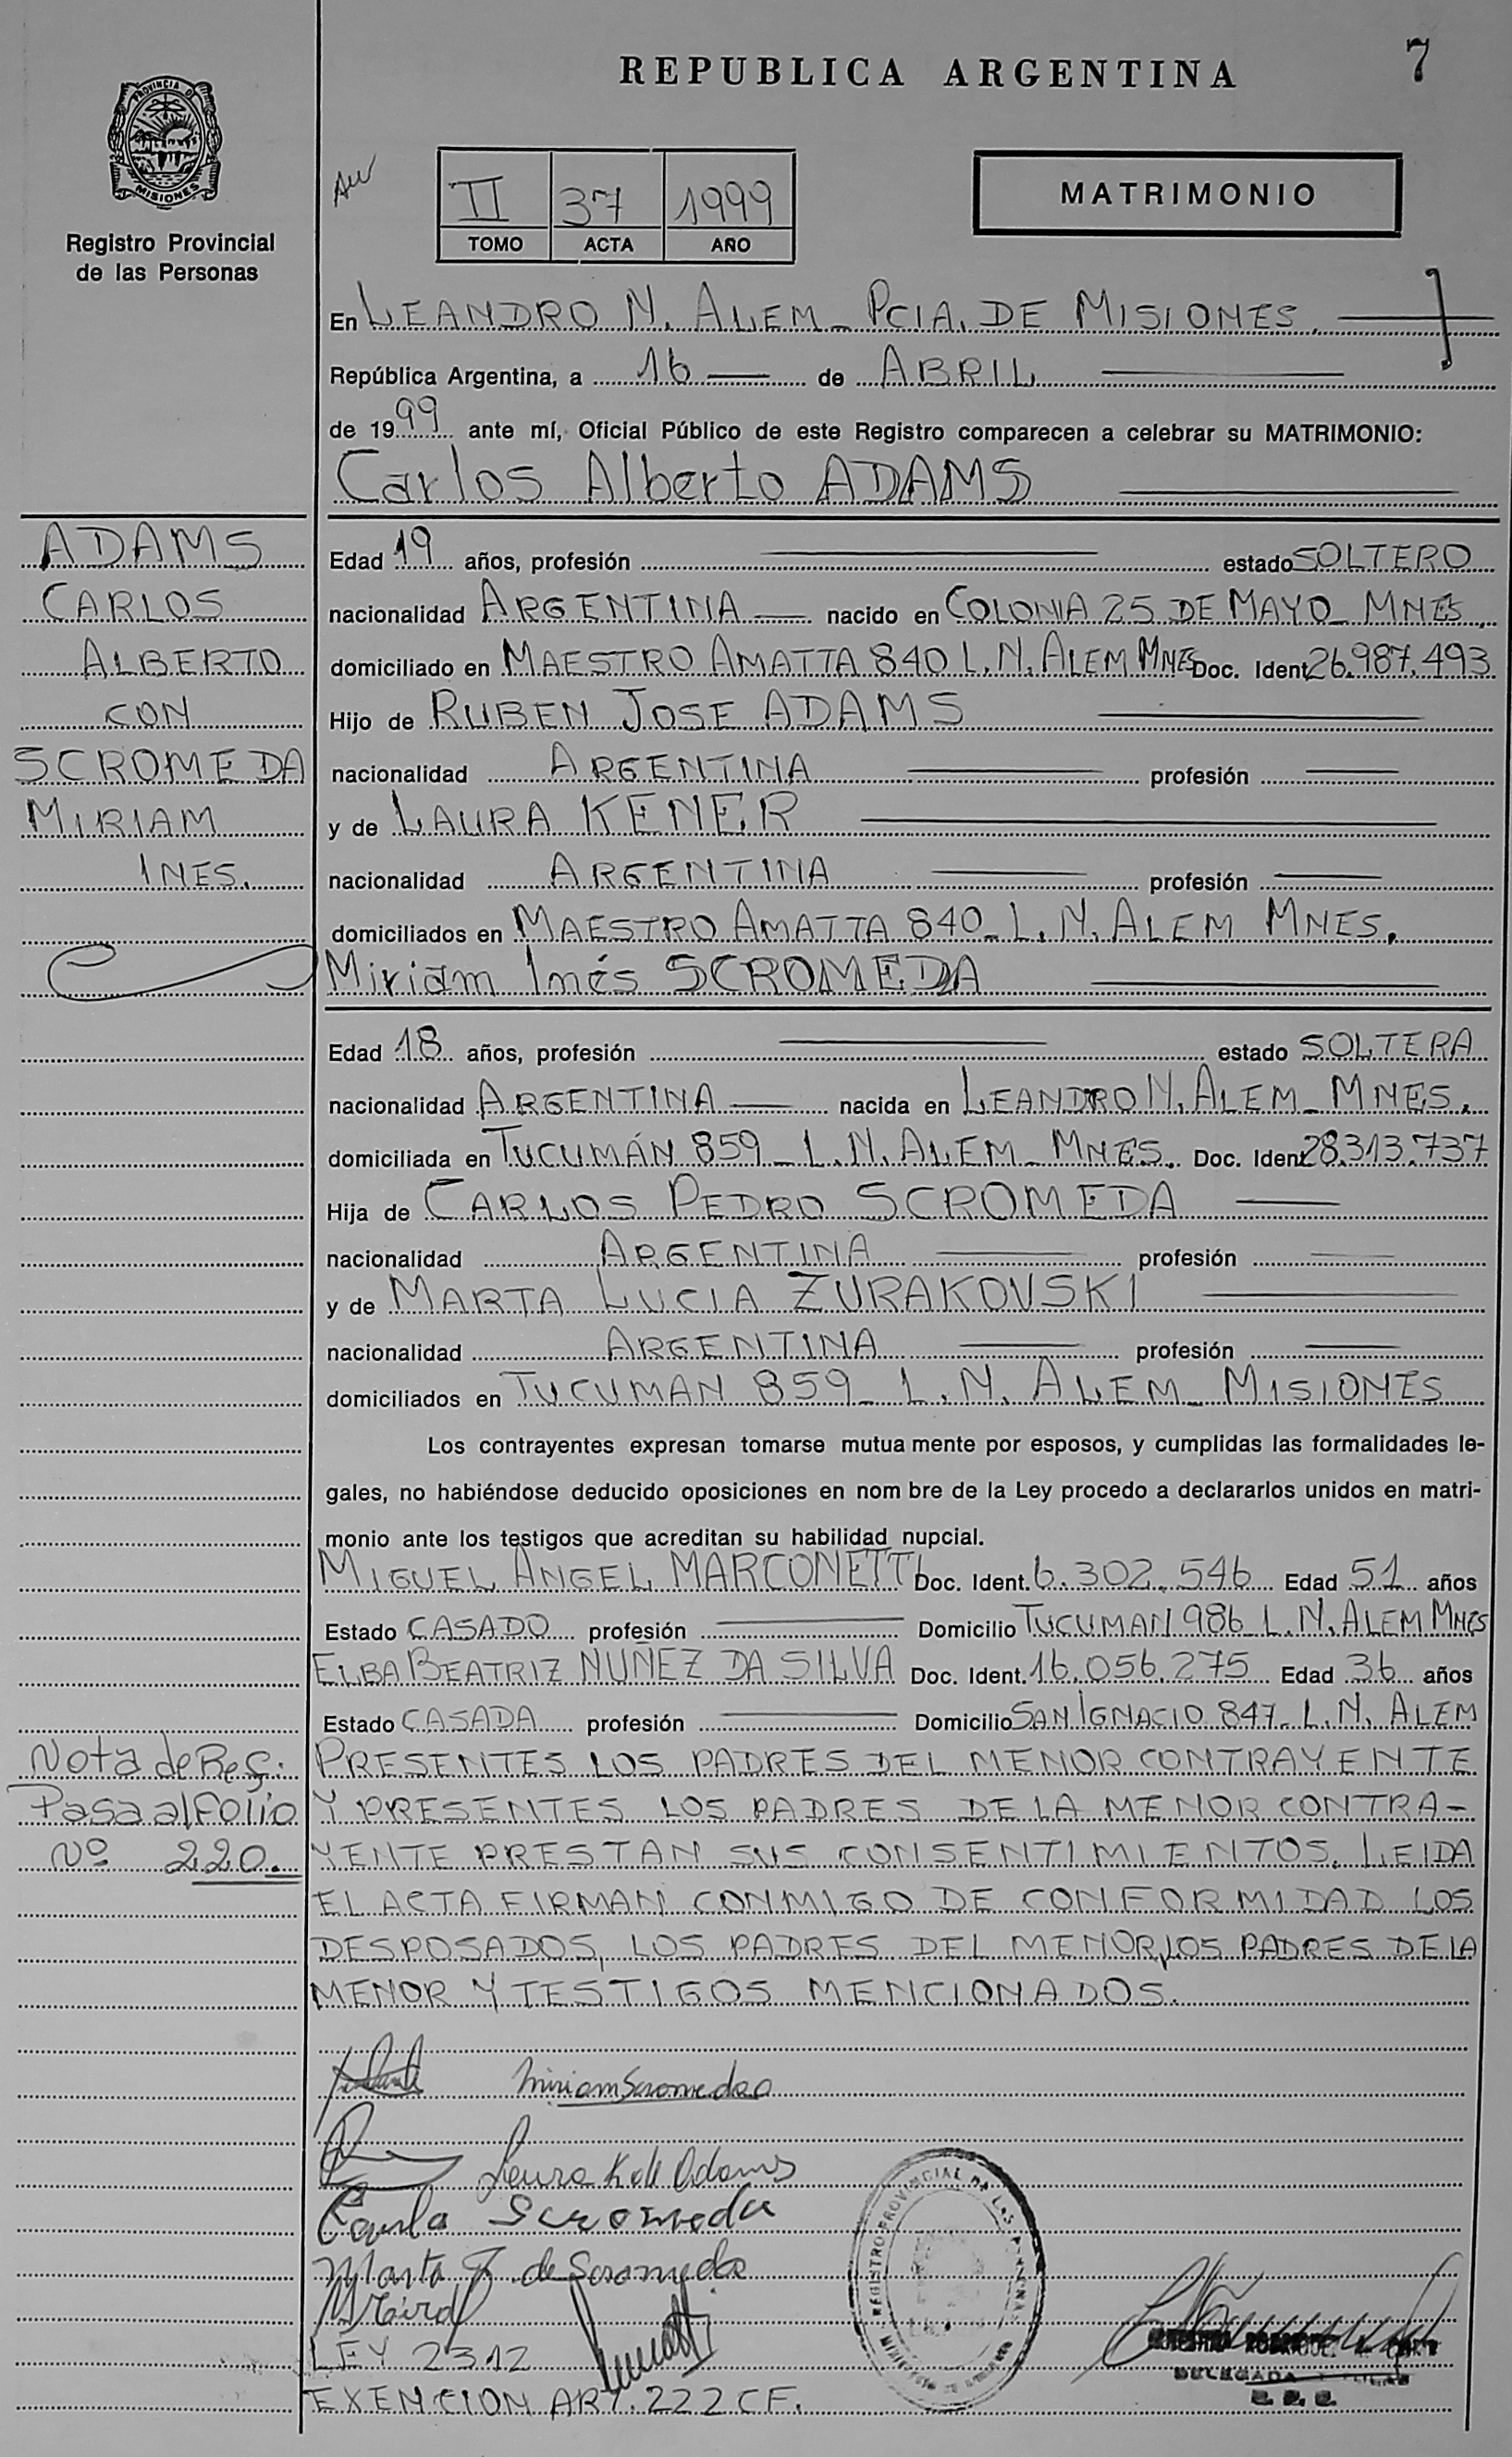 REPUBLICA ARGENTINA
7
PROVINCIA D
MISIONES
Registro Provincial
de las Personas
II 37 1999
TOMO ACTA AÑO
MATRIMONIO
En LEANDRO N. ALEM_ PCIA. DE MISIONES.
República Argentina, a 16 de ABRIL
de 1999 ante mí, Oficial Público de este Registro comparecen a celebrar su MATRIMONIO:
Carlos Alberto ADAMS
ADAMS
CARLOS
ALBERTO
CON
SCROMEDA
MIRIAM
INES.
Edad 19 años, profesión estado SOLTERO
nacionalidad ARGENTINA nacido en COLONIA 25 DE MAYO_ MNES.
domiciliado en MAESTRO AMATTA 840 L.N. ALEM MNES Doc. Ident 26.987.493
Hijo de RUBEN JOSE ADAMS
nacionalidad ARGENTINA profesión
y de LAURA KENER
nacionalidad ARGENTINA profesión
domiciliados en MAESTRO AMATTA 840_ L.N. ALEM MNES.
Miriam Inés SCROMEDA
Edad 18 años, profesión estado SOLTERA
nacionalidad ARGENTINA nacida en LEANDRO N. ALEM_ MNES.
domiciliada en TUCUMÁN 859_ L.N. ALEM_ MNES. Doc. Ident 28.313.737
Hija de CARLOS PEDRO SCROMEDA
nacionalidad ARGENTINA profesión
y de MARTA LUCIA ZURAKOVSKI
nacionalidad ARGENTINA profesión
domiciliados en TUCUMAN 859_ L.N. ALEM_ MISIONES
Los contrayentes expresan tomarse mutua mente por esposos, y cumplidas las formalidades le-
gales, no habiéndose deducido oposiciones en nom bre de la Ley procedo a declararlos unidos en matri-
monio ante los testigos que acreditan su habilidad nupcial.
MIGUEL ANGEL MARCONETTI Doc. Ident. 6.302.546 Edad 51 años
Estado CASADO profesión Domicilio TUCUMAN 986_ L.N. ALEM MNES
ELBA BEATRIZ NUÑEZ DA SILVA Doc. Ident. 16.056.275 Edad 36 años
Estado CASADA profesión Domicilio SAN IGNACIO 847_ L.N. ALEM
Nota de Ref:
Pasa al Folio
Nº 220.
PRESENTES LOS PADRES DEL MENOR CONTRAYENTE
Y PRESENTES LOS PADRES DE LA MENOR CONTRA-
YENTE PRESTAN SUS CONSENTIMIENTOS. LEIDA
EL ACTA FIRMAN CONMIGO DE CONFORMIDAD LOS
DESPOSADOS, LOS PADRES DEL MENOR, LOS PADRES DE LA
MENOR Y TESTIGOS MENCIONADOS.
Miriam Scromeda
Laura K de Adams
Scromeda
Marta Z. de Scromeda
REGISTRO PROVINCIAL DE LAS
LEY 2312
DELEGADA
EXENCION ART. 222 CF.